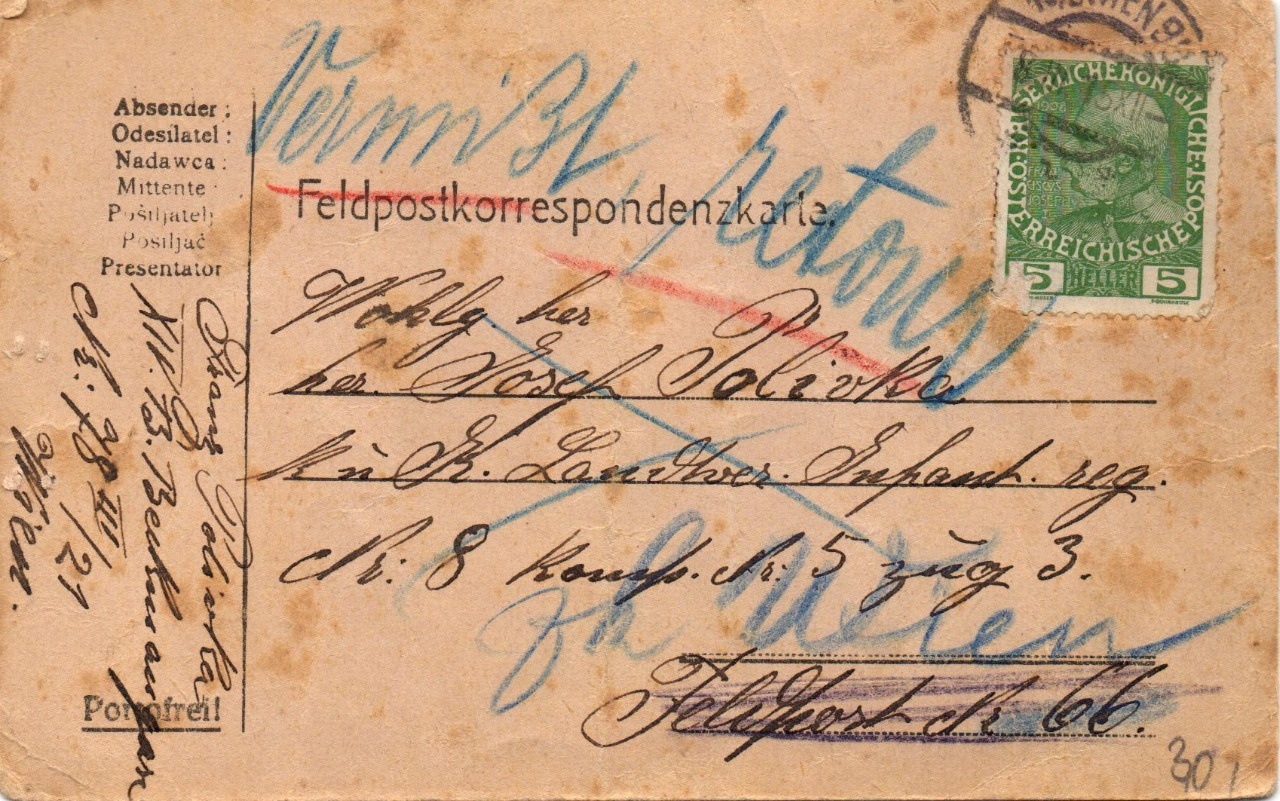 WIEN 9
KAISERLICHE KÖNIGLICHE
ÖSTERREICHISCHE POST
1908
5 HELLER 5
Vermißt, retour
Absender:
Odesílatel:
Nadawca:
Mittente:
Pošiljatelj
Posiljač
Presentator
Feldpostkorrespondenzkarte.
Wohlg her
her. Josef Polivka
k u K. Landwer. Infant. reg.
Nr: 8 komp. Nr: 5 zug 3.
Wien
Feldpost Nr 66.
Franz Polivka
XIV. B. Beckmangasse
Nr: 78 III/21
Wien.
Portofrei!
30